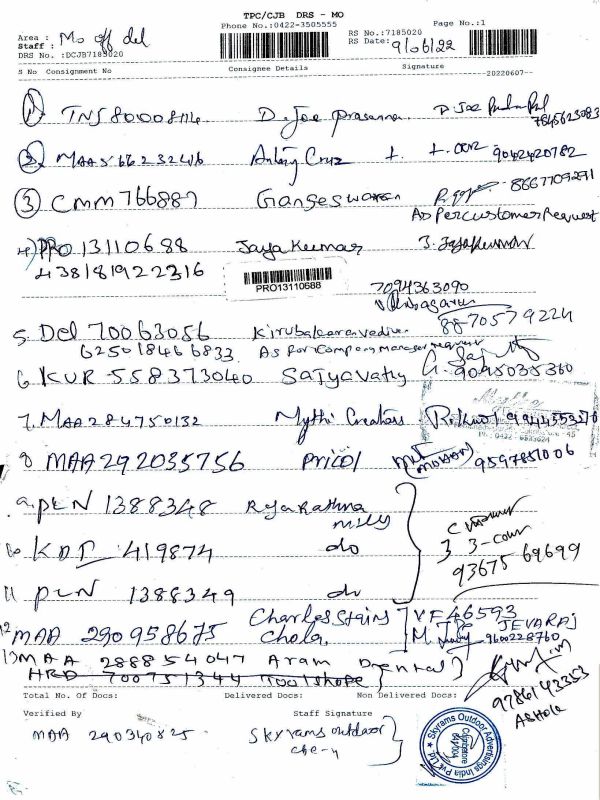 TPC/CJB DRS - MO
Phone No.:0422-3505555 Page No.:1
Area : Mo off del RS No.:7185020
Staff : RS Date: 9/06/22
DRS No. :DCJB7185020
S No Consignment No Consignee Details Signature
20220607--
① TNJ 80008114 D. Joe Prasanna 7845623083
② MAA 566232416 Antony Cruz 9042420782
③ CMM 766887 Gangeswaran 8667709291
As Per customer Request
4) PRO 13110688 Jaya Kumar J. Jayakumar
438181922216 PRO13110688
7094363090
5. Del 70063056 Kirubakaravadivu 8870579224
62501846 6833 As Per Company manager
6. KUR 558373040 Sathyavathy 9095035360
7. MAA 284750132 Mythi Creations 9944553270
8 MAA 292035756 Pricol 9597851006
9. PLN 1388348 Rajarathna mills
10 KDI 419874 do 3 3-cour
93675 69699
11 PLN 1388349 do
12 MAA 290958675 Charles Stains Chola. VF 46593
JEVARAJ
9600228760
13 MAA 288854047 Aram Dental
HRD 700751344 Toolshope 9786143353
Total No. Of Docs: Delivered Docs: Non Delivered Docs:
Ashok
Verified By Staff Signature
MAA 290340825 Skyrams outdoor
che-4
Skyrams Outdoor Advertisings India Pvt Ltd
Coimbatore